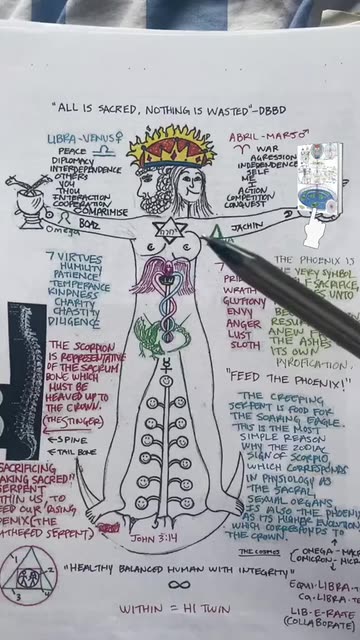 "ALL IS SACRED, NOTHING IS WASTED"-DBBD
LIBRA-VENUS♀
PEACE ♎
DIPLOMACY
INTERDEPENDENCE
OTHERS
YOU
THOU
INTERACTION
COOPERATION
COMPARIMISE
Omega
BOAZ
APRIL-MARS♂
♈ WAR
AGRESSION
INDEPENDENCE
SELF
ME
I
ACTION
COMPETITION
CONQUEST
JACHIN
7 VIRTUES
HUMILITY
PATIENCE
TEMPERANCE
KINDNESS
CHARITY
CHASTITY
DILIGENCE
7
WRATH
GLUTTONY
ENVY
ANGER
LUST
SLOTH
THE PHOENIX IS
THE VERY SYMBOL
ANEW
THE ASHES
ITS OWN
PYROFICATION.
"FEED THE PHOENIX!"
THE SCORPION
IS REPRESENTATIVE
OF THE SACRUM
BONE WHICH
MUST BE
HEAVED UP TO
THE CROWN.
(THE STINGER)
←SPINE
←TAIL BONE
THE CREEPING
SERPENT IS FOOD FOR
THE SOARING EAGLE.
THIS IS THE MOST
SIMPLE REASON
WHY THE ZODIAC
SIGN OF SCORPIO,
WHICH CORRESPONDS
IN PHYSIOLOGY AS
THE SACRAL,
SEXUAL ORGANS
IS ALSO THE PHOENIX
AS ITS HIGHER EVOLUTION
WHICH CORRESPONDS TO
THE CROWN.
SACRIFICING
MAKING SACRED!"
SERPENT
WITHIN US, TO
FEED OUR RISING
PHOENIX (THE
FEATHERED SERPENT)
John 3:14
THE COSMOS
(OMEGA-
(OMICRON-
"HEALTHY BALANCED HUMAN WITH INTEGRITY"
1
2
3
4
∞
EQUI-LIBRA-
CO-LIBRA-
LIB-E-RATE
(COLLABORATE)
WITHIN = HI TWIN